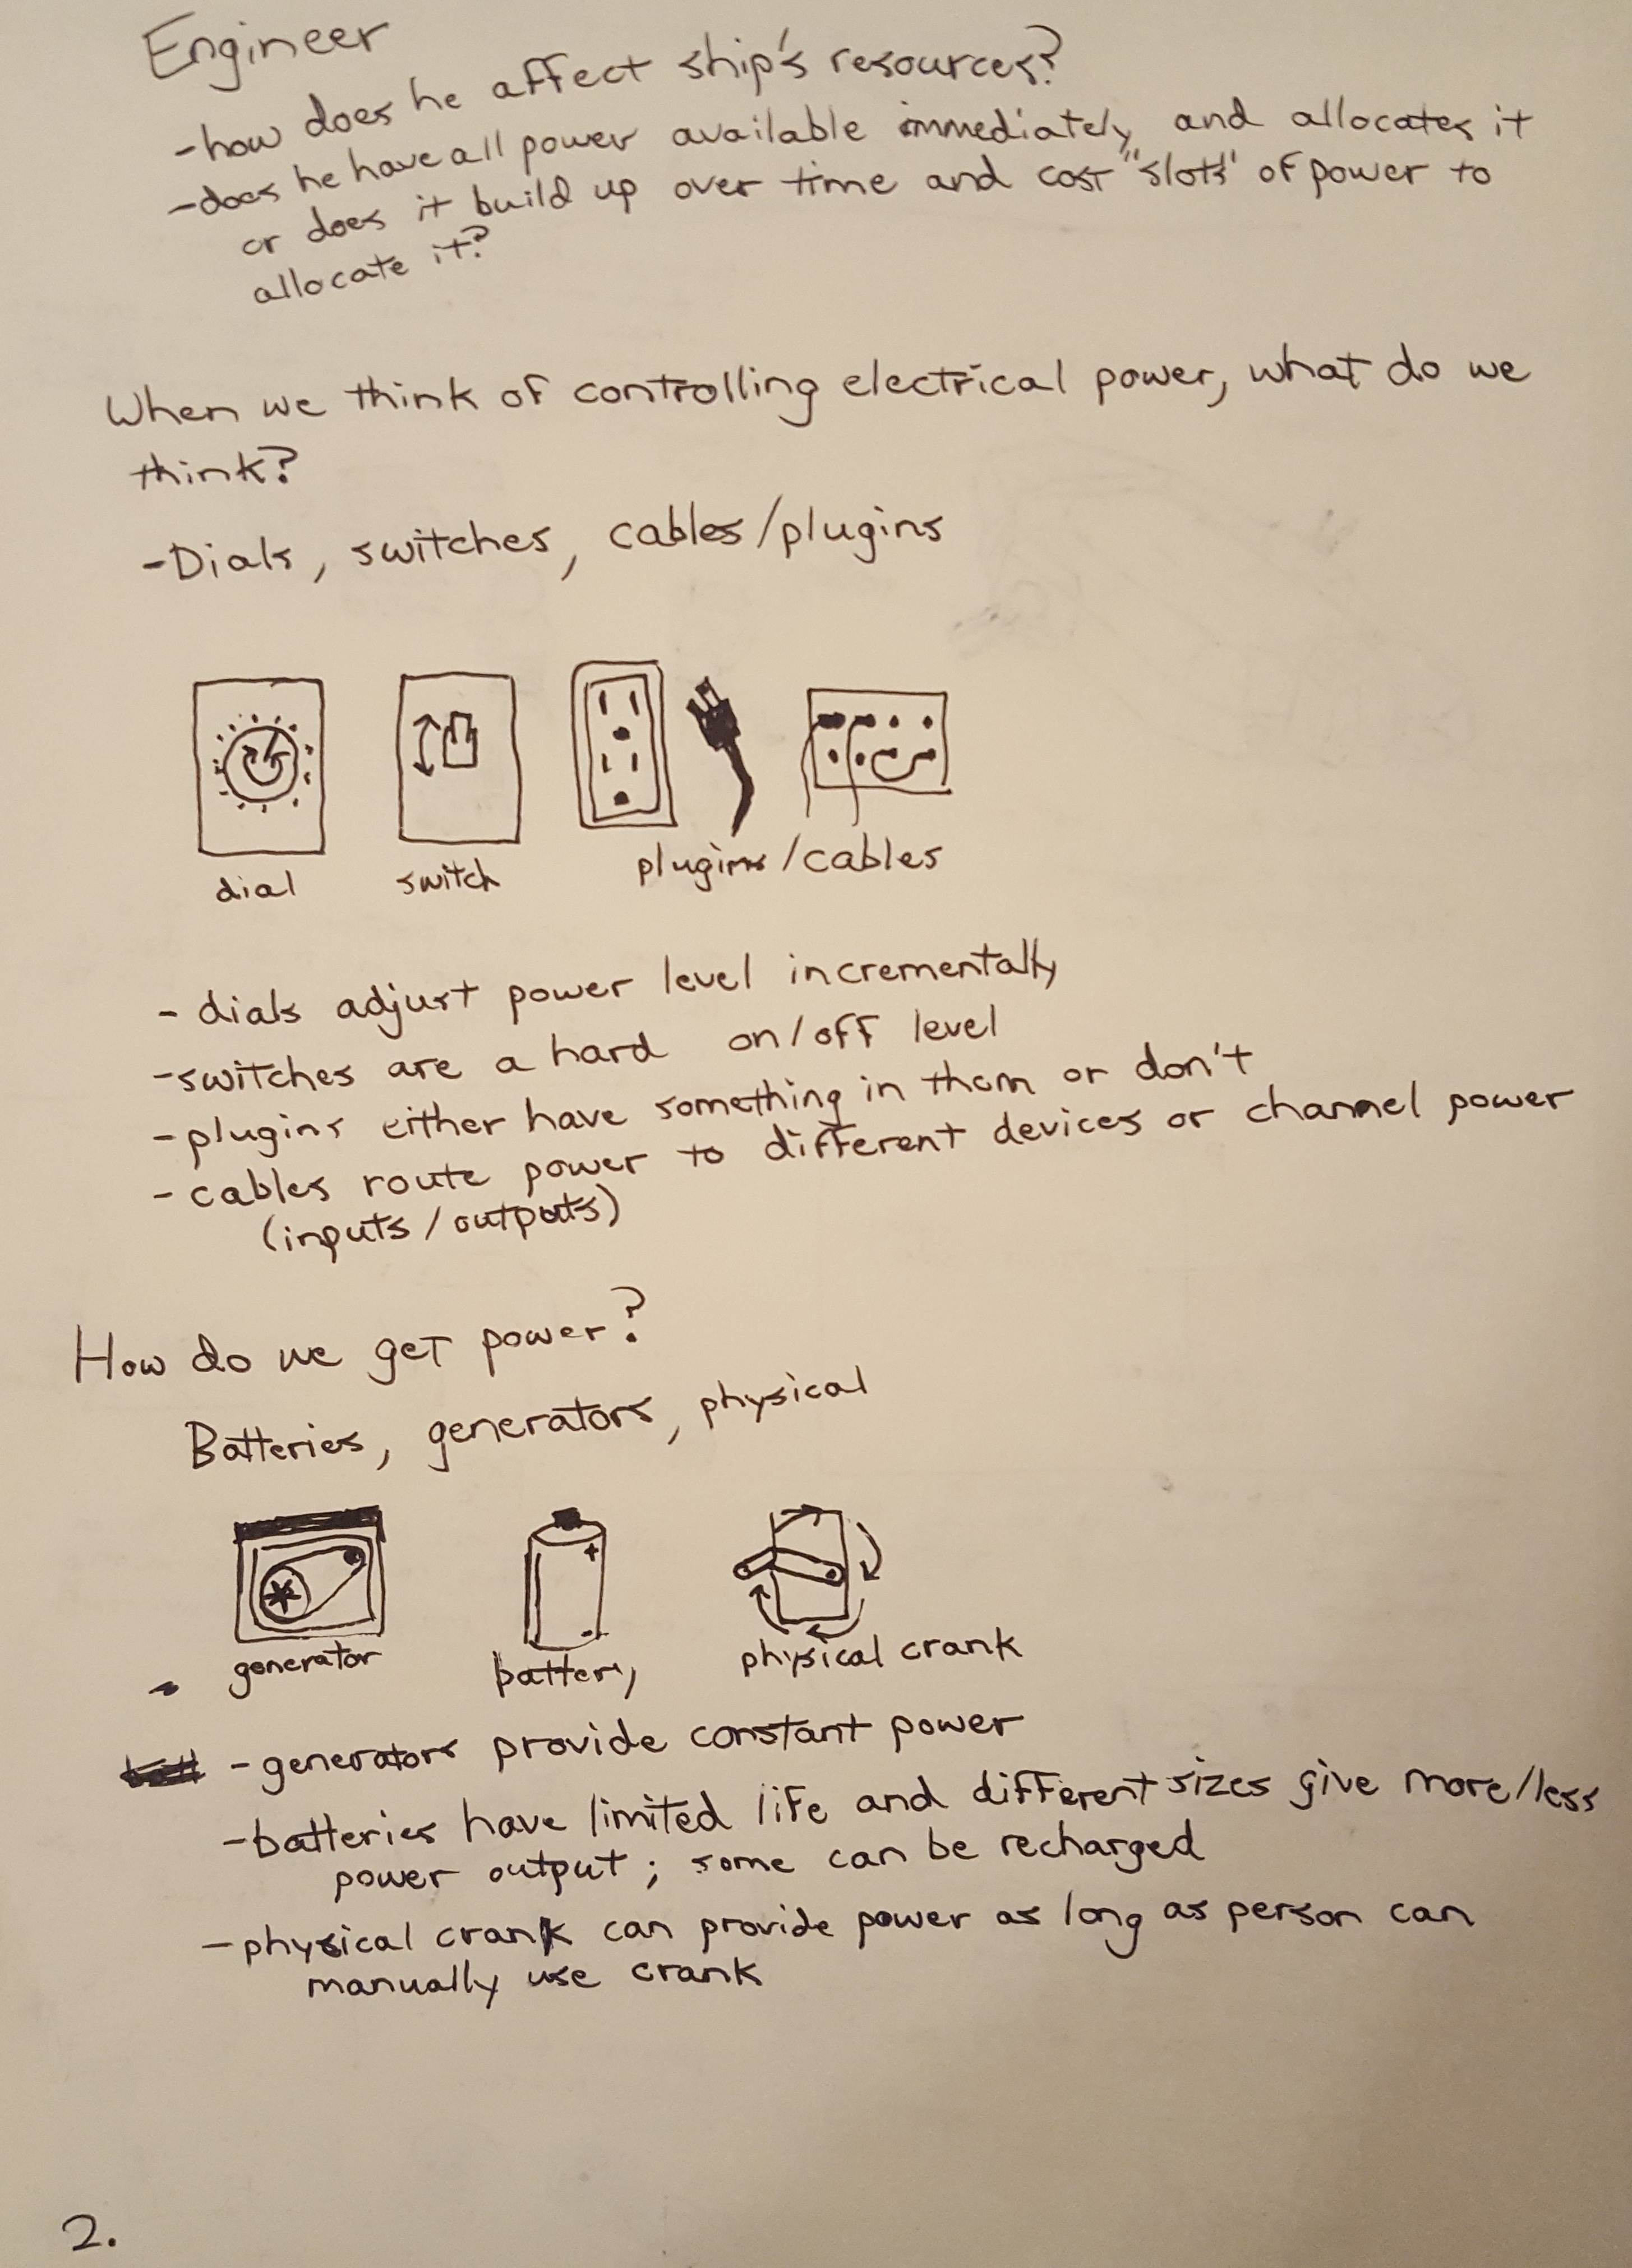 Engineer
-how does he affect ship's resources?
-does he have all power available immediately and allocates it
or does it build up over time and cost "slots" of power to
allocate it?
When we think of controlling electrical power, what do we
think?
-Dials, switches, cables/plugins
dial
switch
plugins/cables
- dials adjust power level incrementally
-switches are a hard on/off level
-plugins either have something in them or don't
-cables route power to different devices or channel power
(inputs/outputs)
How do we get power?
Batteries, generators, physical
generator
battery
physical crank
-generators provide constant power
-batteries have limited life and different sizes give more/less
power output; some can be recharged
-physical crank can provide power as long as person can
manually use crank
2.